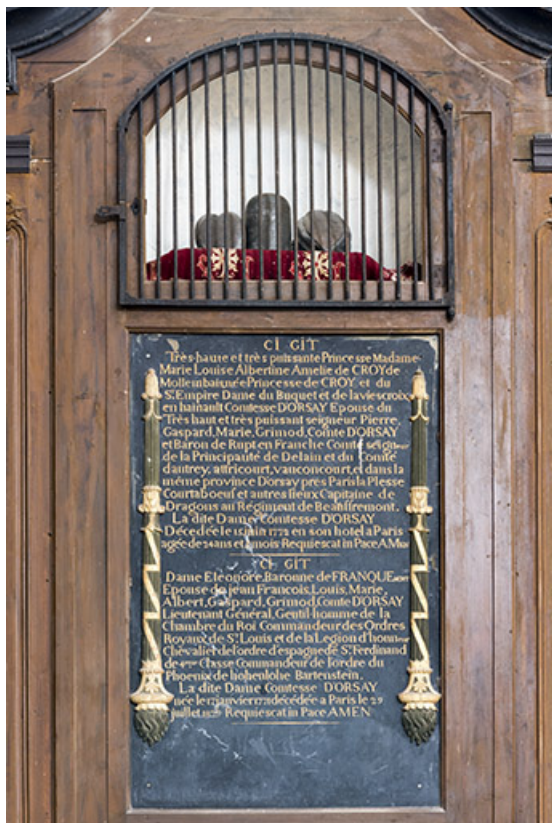 CI GIT
Très haute et très puissante Princesse Madame
Marie Louise Albertine Amelie de CROY de
Mollembaix née Princesse de CROY et du
St. Empire Dame du Buquet et de la viescroix
en hainault Comtesse D'ORSAY Epouse du
Très haut et très puissant seigneur Pierre,
Gaspard, Marie, Grimod, Comte D'ORSAY
et Baron de Rupt en Franche Comté seigneur
de la Principauté de Delain et du Comté
dautrey, attricourt, vauconcourt, et dans la
même province Dorsay près Paris la Plesse
Courtaboeuf et autres lieux Capitaine de
Dragons au Régiment de Beauffremont.
La dite Dame Comtesse D'ORSAY
Décédée le juin 1772 en son hotel a Paris
agée de 24 ans et mois Requiescat in Pace AMen
CI GIT
Dame Eléonore Baronne de FRANQUEmont
Epouse de jean Francois, Louis, Marie,
Albert, Gaspard, Grimod, Comte D'ORSAY
Lieutenant Général, Gentilhomme de la
Chambre du Roi Commandeur des Ordres
Royaux de St. Louis et de la Legion d'honneur
Chevalier de l'ordre d'espagne de St. Ferdinand
de 4eme Classe Commandeur de l'ordre du
Phoenix de hohenlohe Bartenstein.
La dite Dame Comtesse D'ORSAY
née le janvier décédée a Paris le
juillet 1829 Requiescat in Pace AMEN